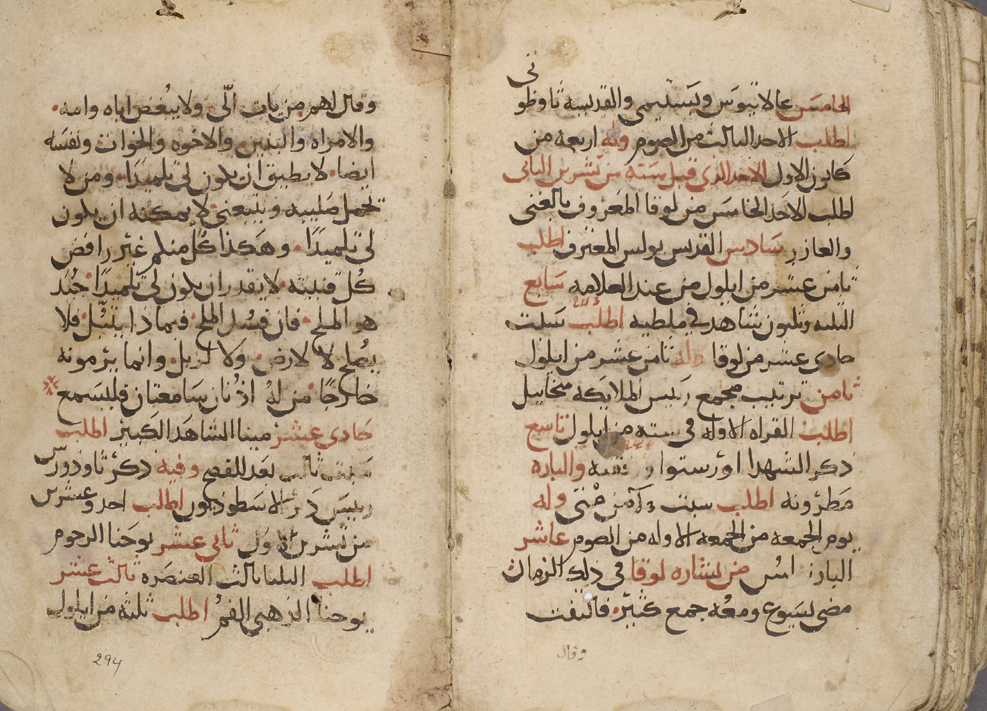 الخامس غالاتيوس وبستيمي والقديسه ثاوظو
ني
اطلب الاحد الثالث من الصوم وله اربعه من
كانون الاول الاحد الذي قبل سته من تشرين الثاني
اطلب الاحد الخامس من لوقا المعروف بالغني
والعازر سادس القديس بولس المعترف اطلب
ثامن عشر من ايلول من عند العلامه سابع
الثلثه وثلثون شاهد في ملطيه اطلب سبت
حادي عشر من لوقا وله ثامن عشر من ايلول
ثامن ترتيب مجمع رييس الملايكه ميخاييل
اطلب القراه الاوله في سته من ايلول تاسع
ذكر الشهدا اؤرستوا والباره
مطرونه اطلب سبت من متى وله
يوم الجمعه من الجمعه الاوله من الصوم عاشر
البار من بشاره لوقا في ذلك الزمان
مضى ليسوع ومعه جمع كثير فالتفت
وقال
وقال لهم من يات الي ولا يبغض اباه وامه
والامراه والبنين والاخوه والخوات ونفسه
ايضا لا يطيق ان يكون لي تلميذا ومن لا
يحمل صليبه ويتبعني لا يمكنه ان يكون
لي تلميذا وهكذا كل منكم غير رافض
كل قنيته لا يقدر ان يكون لي تلميذا جيد
هو الملح فان فسد الملح فبماذا يتبل فلا
يصلح لا للارض ولا لزبل وانما يرمونه
خارجا من له اذنان سامعتان فليسمع
حادي عشر مينا الشاهد الكبير اطلب
ثالث بعد الفصح وفيه ذكر ثاودورس
رييس دير الاسطوديون اطلب احد وعشرين
من تشرين الاول ثاني عشر يوحنا الرحوم
اطلب الثلثا ثالث العنصره ثالث عشر
يوحنا الذهبي الفم اطلب ثلثه من ايلول
294